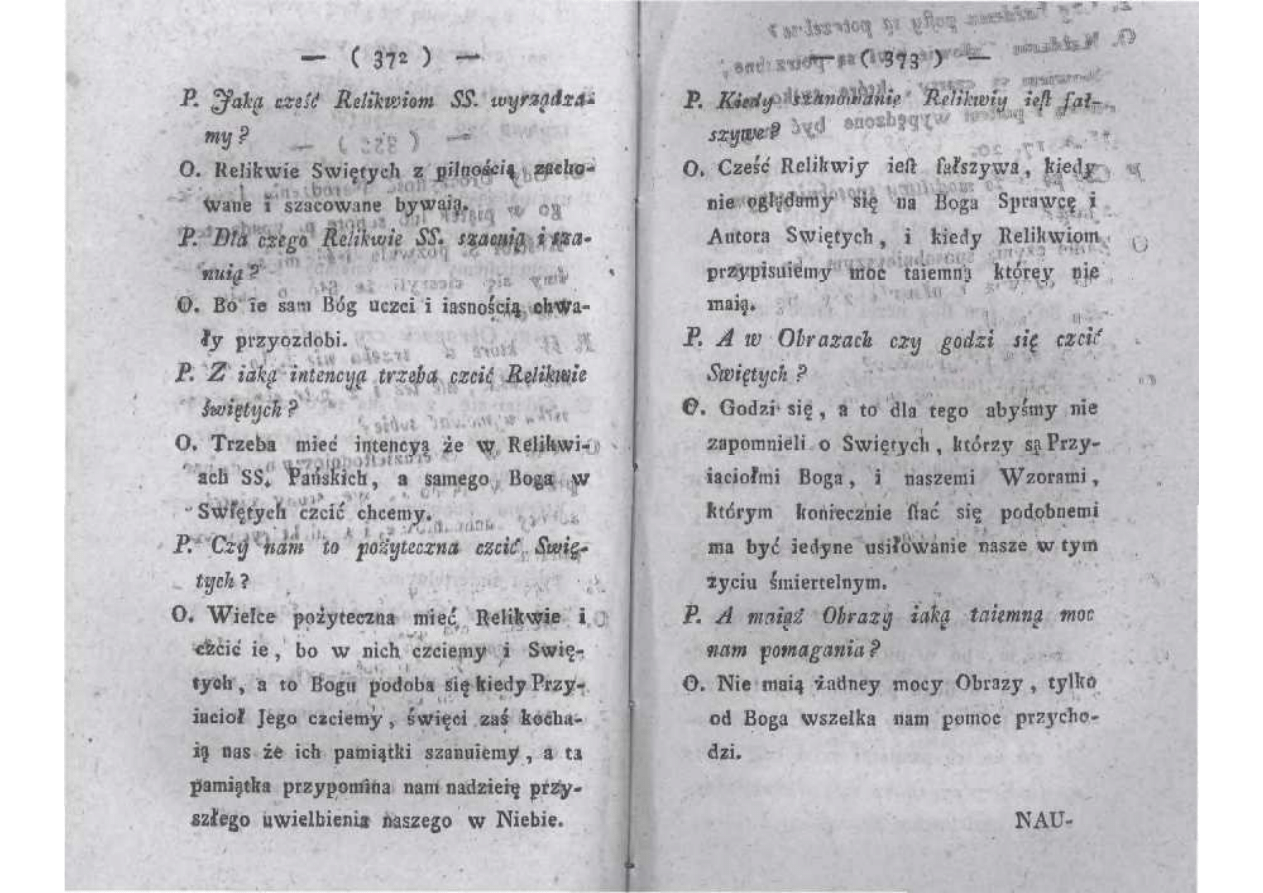 — ( 372 ) —
P. Jaką cześć Relikwiom SS. wyrządza-
my?
O. Relikwie Swiętych z pilnością zacho-
wane i szacowane bywaią.
P. Dla czego Relikwie SS. szacuią i sza-
nuią?
O. Bo ie sam Bóg uczci i iasnością chwa-
ły przyozdobi.
P. Z iaką intencyą trzeba czcić Relikwie
świętych?
O. Trzeba mieć intencyą że w Relikwi-
ach SS. Pańskich, a samego Boga w
Swiętych czcić chcemy.
P. Czy nam to pożyteczna czcić Swię-
tych?
O. Wielce pożyteczna mieć Relikwie i
czcić ie, bo w nich czciemy i Swię-
tych, a to Bogu podoba się kiedy Przy-
iacioł Jego czciemy, święci zaś kocha-
ią nas że ich pamiątki szanuiemy, a ta
pamiątka przypomina nam nadzieię przy-
szłego uwielbienia naszego w Niebie.
— ( 373 ) —
P. Kiedy szanowanie Relikwiy ieſt fał-
szywe?
O. Cześć Relikwiy ieſt fałszywa, kiedy
nie oglądamy się na Boga Sprawcę i
Autora Swiętych, i kiedy Relikwiom
przypisuiemy moc taiemną któręy nie
maią.
P. A w Obrazach czy godzi się czcić
Swiętych?
O. Godzi się, a to dla tego abyśmy nie
zapomnieli o Swiętych, którzy są Przy-
iaciołmi Boga, i naszemi Wzorami,
którym koniecznie ſtać się podobnemi
ma być iedyne usiłowanie nasze w tym
życiu śmiertelnym.
P. A maiąż Obrazy iaką taiemną moc
nam pomagania?
O. Nie maią żadney mocy Obrazy, tylko
od Boga wszelka nam pomoc przycho-
dzi.
NAU-